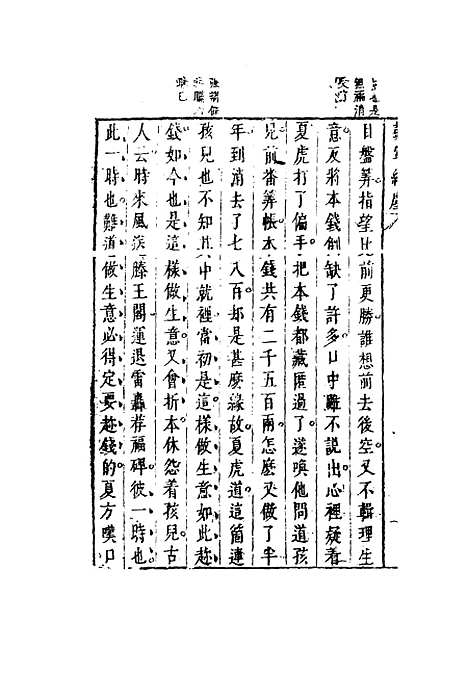 目盤算指望比前更勝誰想前去後空又不輯理生
意反將本錢創缺了許多口中雖不說出心裡疑着
夏虎打了偏手把本錢都藏匿過了遂喚他問道孩
兒前番筭帳本錢共有二千五百兩怎麼又做了半
年到消去了七八百却是甚麼緣故夏虎道這箇連
孩兒也不知其中就裡當初是這樣做生意如此趂
錢如今也是這樣做生意又會折本休怨着孩兒古
人云時來風送滕王閣運退雷轟荐福碑彼一時也
此一時也難道做生意必得定要趂錢的夏方嘆口